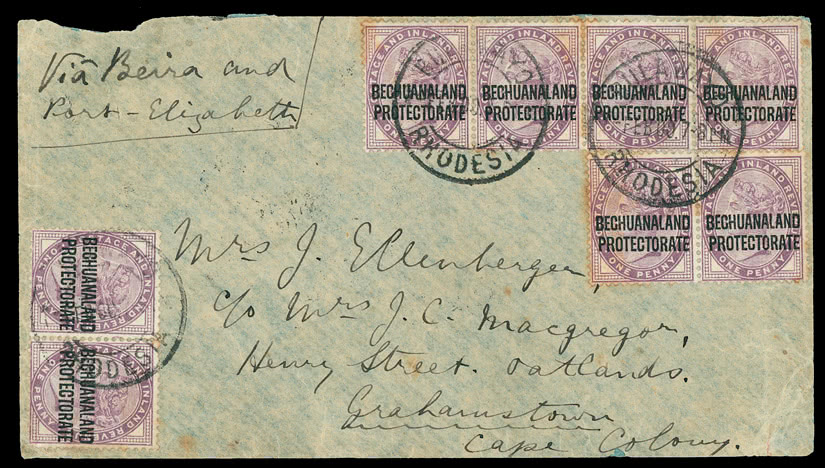 Viâ Beira and
Port-Elizabeth
POSTAGE AND INLAND REVENUE
BECHUANALAND
PROTECTORATE
ONE PENNY
POSTAGE AND INLAND REVENUE
BECHUANALAND
PROTECTORATE
ONE PENNY
POSTAGE AND INLAND REVENUE
BECHUANALAND
PROTECTORATE
ONE PENNY
POSTAGE AND INLAND REVENUE
BECHUANALAND
PROTECTORATE
ONE PENNY
RHODESIA
BULAWAYO
FEB
7-8 PM
RHODESIA
POSTAGE AND INLAND REVENUE
BECHUANALAND
PROTECTORATE
ONE PENNY
POSTAGE AND INLAND REVENUE
BECHUANALAND
PROTECTORATE
ONE PENNY
Mrs J. Ellenberger,
c/o Mrs J. C. Macgregor,
Henry Street. Oatlands.
Grahamstown
Cape Colony.
POSTAGE AND INLAND REVENUE
BECHUANALAND
PROTECTORATE
ONE PENNY
POSTAGE AND INLAND REVENUE
BECHUANALAND
PROTECTORATE
ONE PENNY